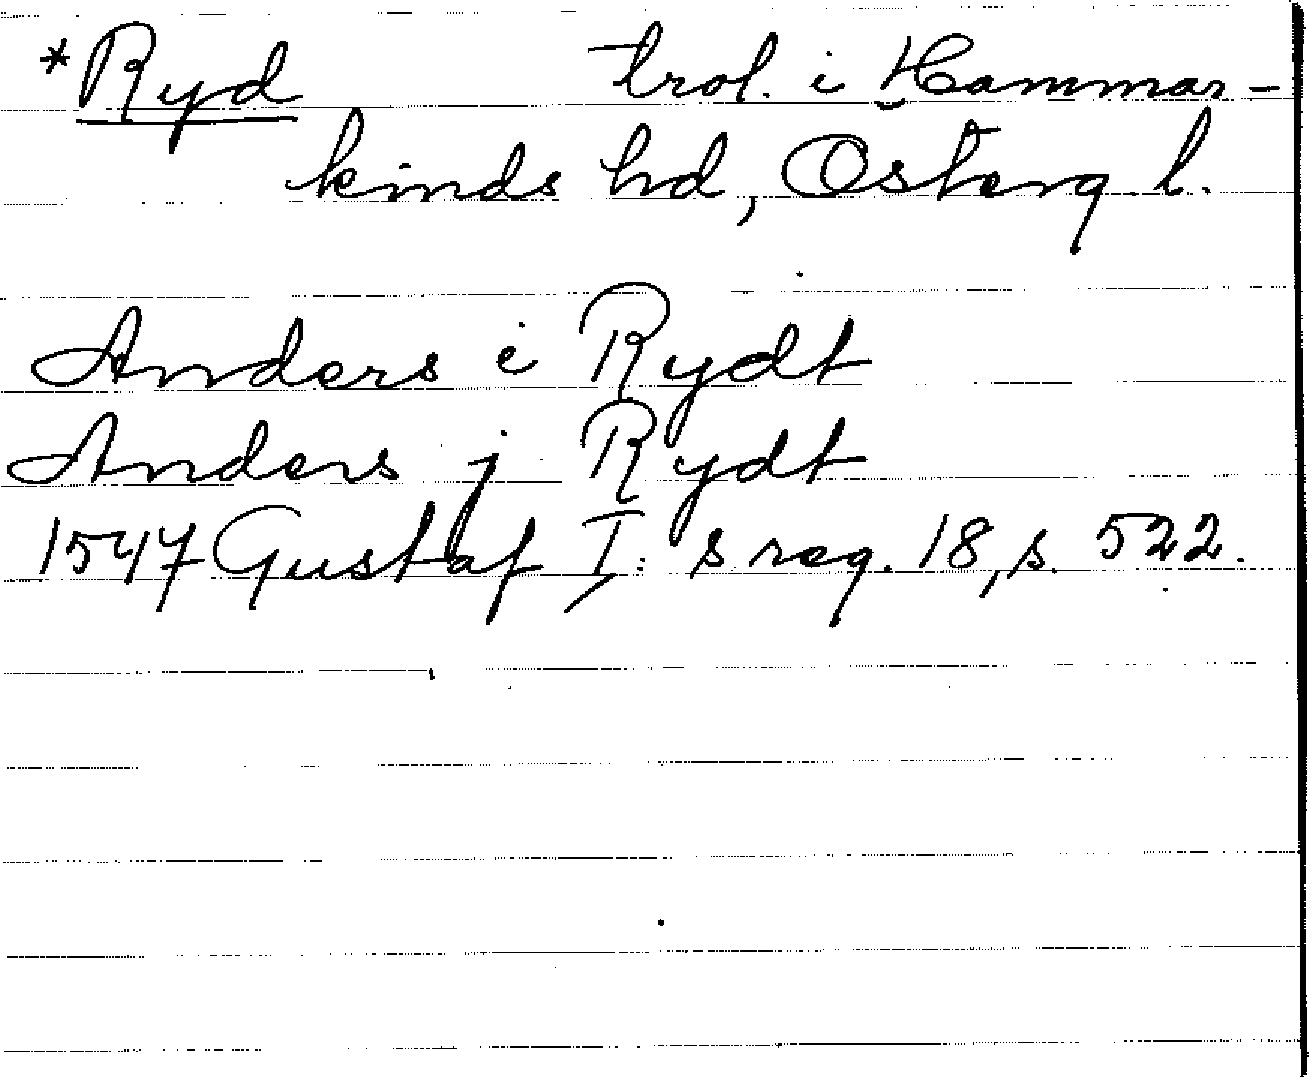 *Ryd trol. i Hammar-
kinds hd, Osterg. l.
Anders i Rydt
Anders j Rydt
1547 Gustaf I:s reg. 18, s. 522.